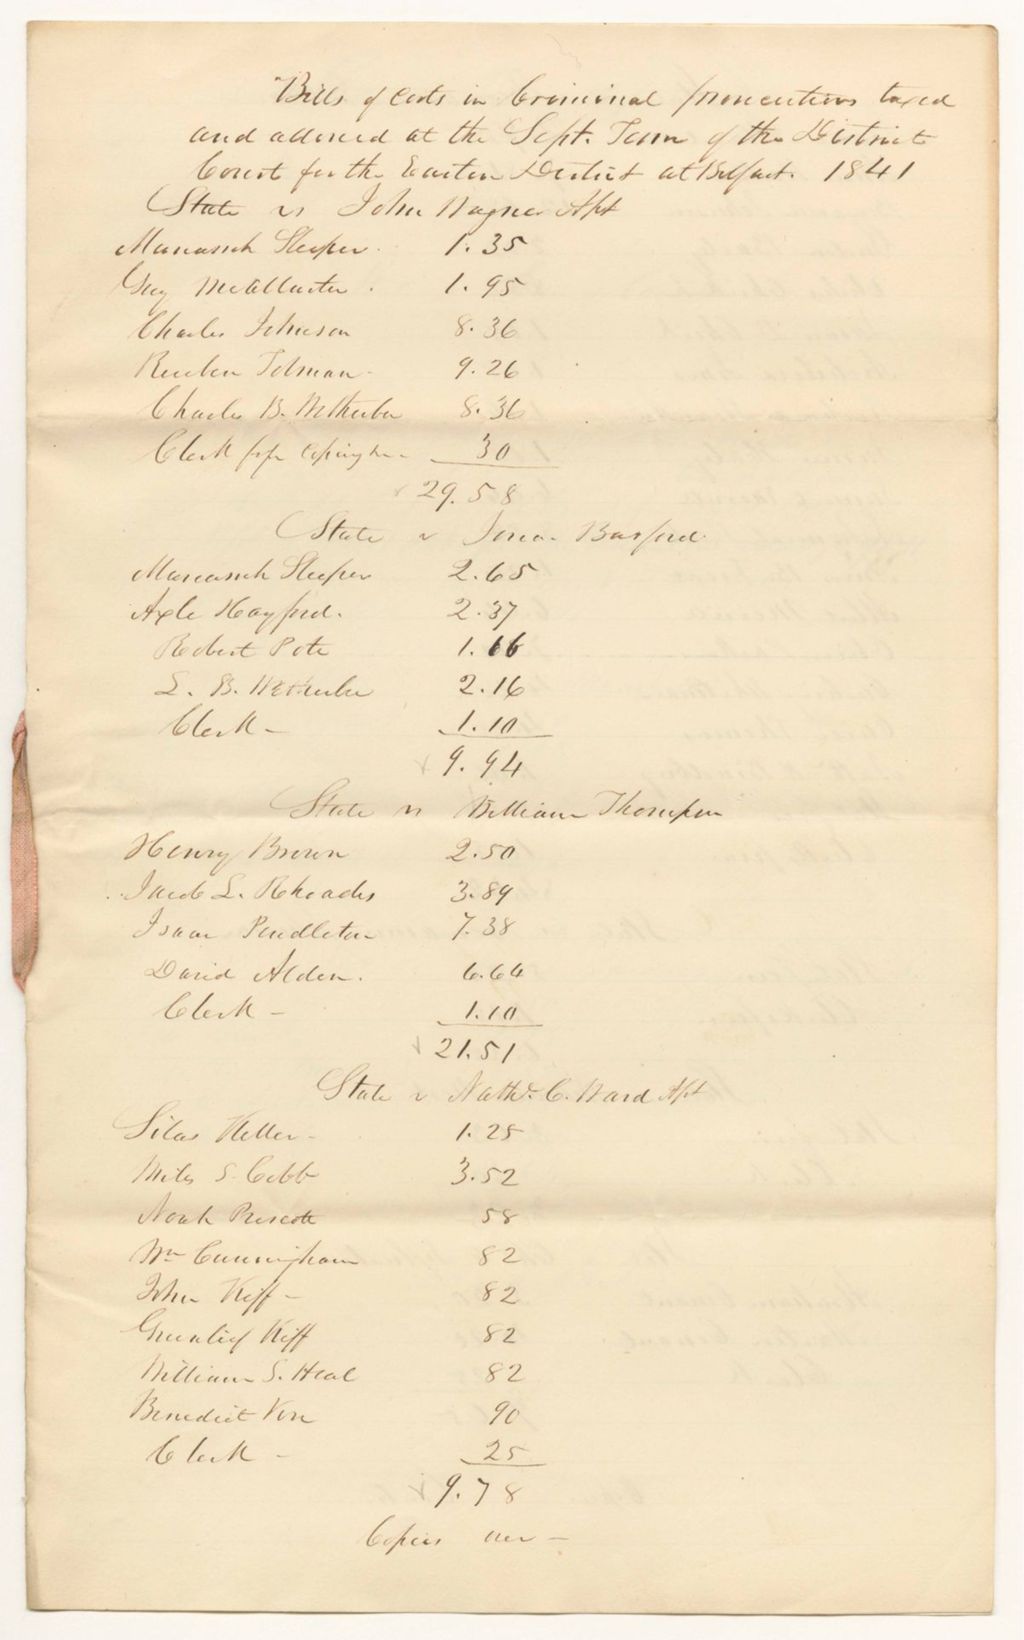 Bills of Costs in Criminal prosecutions taxed
and allowed at the Sept. Term of the District
Court for the Eastern District at Belfast. 1841
State vs John Wagner Apt
Manasseh Sleeper. 1.35
Guy McAllister. 1.95
Charles Johnson 8.36
Reuben Tolman 9.26
Charles B. Wetherbee 8.36
Clerk for copying 30
29.58
State v Jona. Basford
Manasseh Sleeper 2.65
Axle Hayford. 2.37
Robert Pote 1.66
L. B. Wetherbee 2.16
Clerk - 1.10
9.94
State vs William Thompson
Henry Brown 2.50
Jacob L. Rhoades 3.89
Isaac Pendleton 7.38
David Alden. 6.64
Clerk - 1.10
21.51
State v Nathl. C. Ward Apt
Silas Keller - 1.25
Miles S. Cobb 3.52
Noah Prescott 58
Wm Cunningham 82
John Kiff - 82
Greenlief Kiff 82
William S. Heal 82
Benedict 90
Clerk - 25
9.78
Copies over -